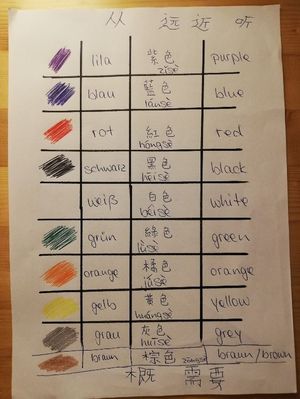 从 远 近 听
lila 紫色 zǐsè purple
blau 藍色 lánsè blue
rot 紅色 hóngsè red
schwarz 黑色 hēisè black
weiß 白色 báisè white
grün 綠色 lǜsè green
orange 橘色 júsè orange
gelb 黃色 huángsè yellow
grau 灰色 huīsè grey
braun 棕色 zōngsè braun/brown
概 需要